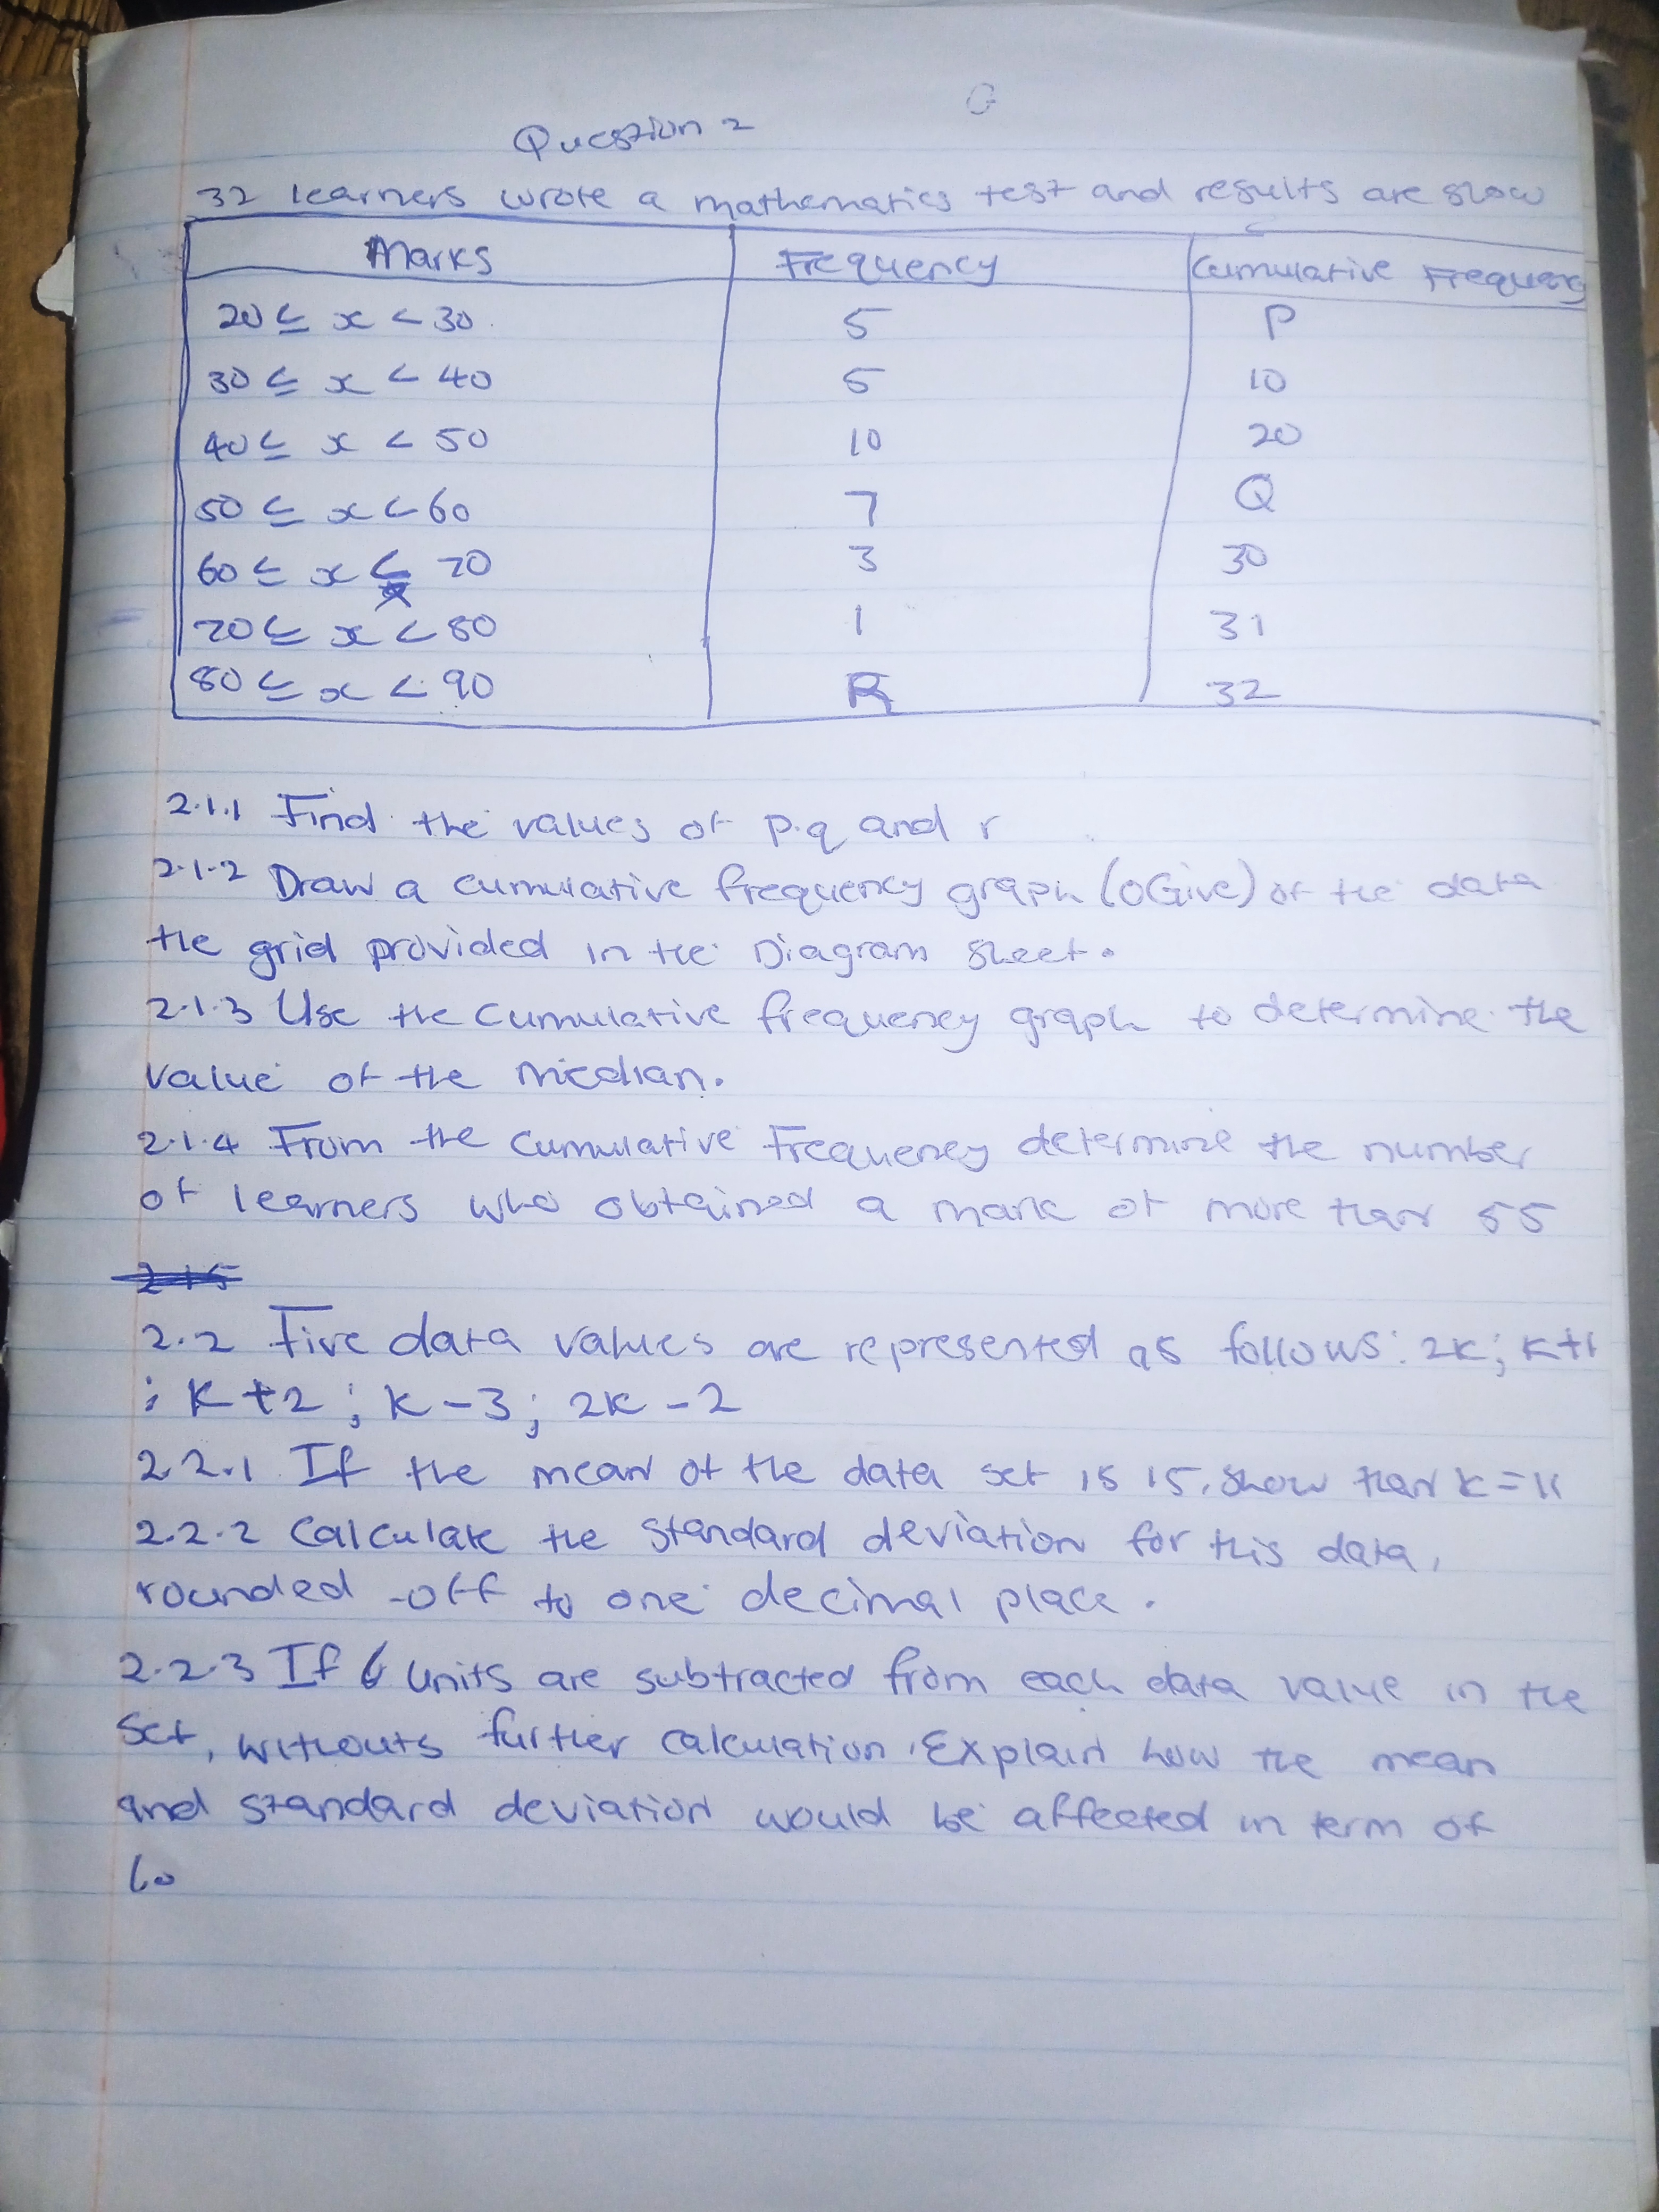 Question 2
32 learners wrote a mathematics test and results are slow
Marks Frequency Cumulative Frequency
20 ≤ x < 30 5 P
30 ≤ x < 40 5 10
40 ≤ x < 50 10 20
50 ≤ x < 60 7 Q
60 ≤ x ≤ 70 3 30
70 ≤ x < 80 1 31
80 ≤ x < 90 R 32
2.1.1 Find the values of p.q and r
2.1.2 Draw a cumulative frequency graph (OGive) of the data
the grid provided in the Diagram sheet.
2.1.3 Use the cumulative frequency graph to determine the
value of the median.
2.1.4 From the cumulative Frequency determine the number
of learners who obtained a mark of more than 55
2.2 Five data values are represented as follows: 2k; k+1
; k+2; k-3; 2k-2
2.2.1 If the mean of the data set is 15, show that k = 11
2.2.2 Calculate the standard deviation for this data,
rounded -off to one decimal place.
2.2.3 If 6 units are subtracted from each data value in the
set, withouts further calculation. Explain how the mean
and standard deviation would be affected in term of